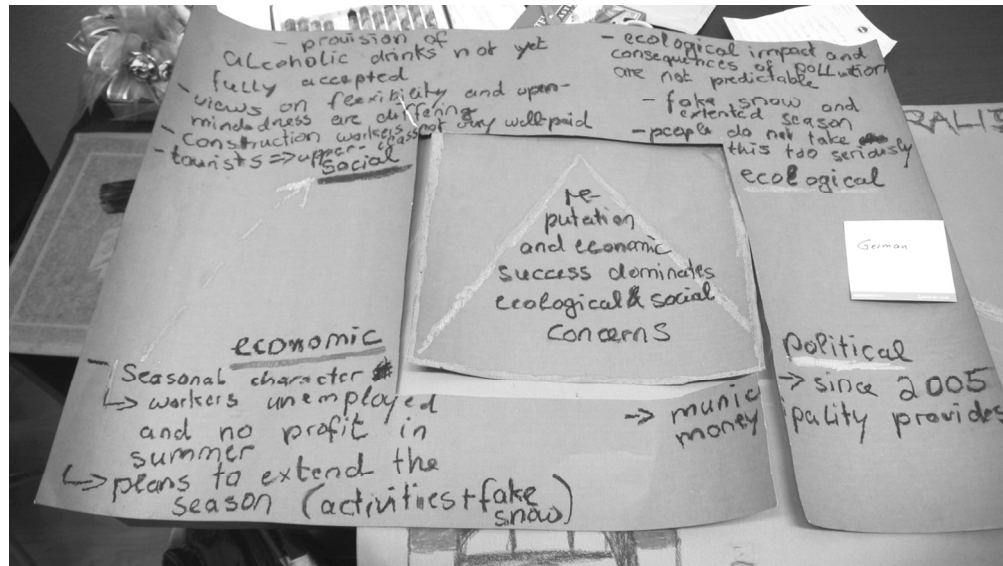 - provision of
alcoholic drinks not yet
fully accepted
- views on flexibility and open-
mindedness are differing
- construction workers not very well-paid
- tourists => upper-class
social
- ecological impact and
consequences of pollution
are not predictable
- fake snow and
extented season
- people do not take
this too seriously
ecological
RALIT
German
re-
putation
and economic
success dominates
ecological & social
concerns
economic
- Seasonal character
↳ workers unemployed
and no profit in
summer
↳ plans to extend the
season (activities + fake
snow)
political
→ since 2005
→ municipality provides
money